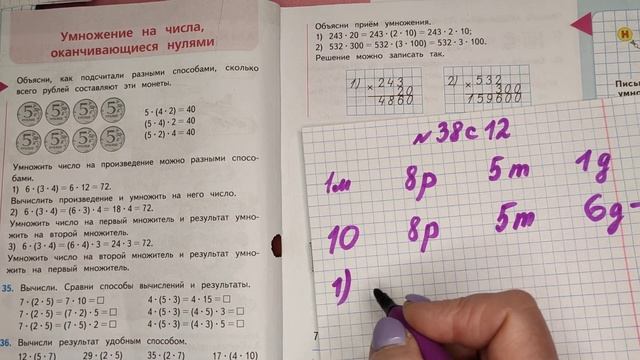 Умножение на числа,
оканчивающиеся нулями
Объясни, как подсчитали разными способами, сколько
всего рублей составляют эти монеты.
5 · (4 · 2) = 40
(5 · 4) · 2 = 40
(5 · 2) · 4 = 40
Умножить число на произведение можно разными спосо-
бами.
1) 6 · (3 · 4) = 6 · 12 = 72.
Вычислить произведение и умножить на него число.
2) 6 · (3 · 4) = (6 · 3) · 4 = 18 · 4 = 72.
Умножить число на первый множитель и результат умно-
жить на второй множитель.
3) 6 · (3 · 4) = (6 · 4) · 3 = 24 · 3 = 72.
Умножить число на второй множитель и результат умно-
жить на первый множитель.
35. Вычисли. Сравни способы вычислений и результаты.
7 · (2 · 5) = 7 · 10 = □ 4 · (5 · 3) = 4 · 15 = □
7 · (2 · 5) = (7 · 2) · 5 = □ 4 · (5 · 3) = (4 · 5) · 3 = □
7 · (2 · 5) = (7 · 5) · 2 = □ 4 · (5 · 3) = (4 · 3) · 5 = □
36. Вычисли результат удобным способом.
12 · (5 · 7) 29 · (2 · 5) 35 · (2 · 7) 17 · (4 · 10)
Объясни приём умножения.
1) 243 · 20 = 243 · (2 · 10) = 243 · 2 · 10;
2) 532 · 300 = 532 · (3 · 100) = 532 · 3 · 100.
Решение можно записать так.
1) × 243
20
4860
2) × 532
300
159600
№ 38 с 12
1м 8р 5т 1д
10 8р 5т 6д-
1)
7
Н